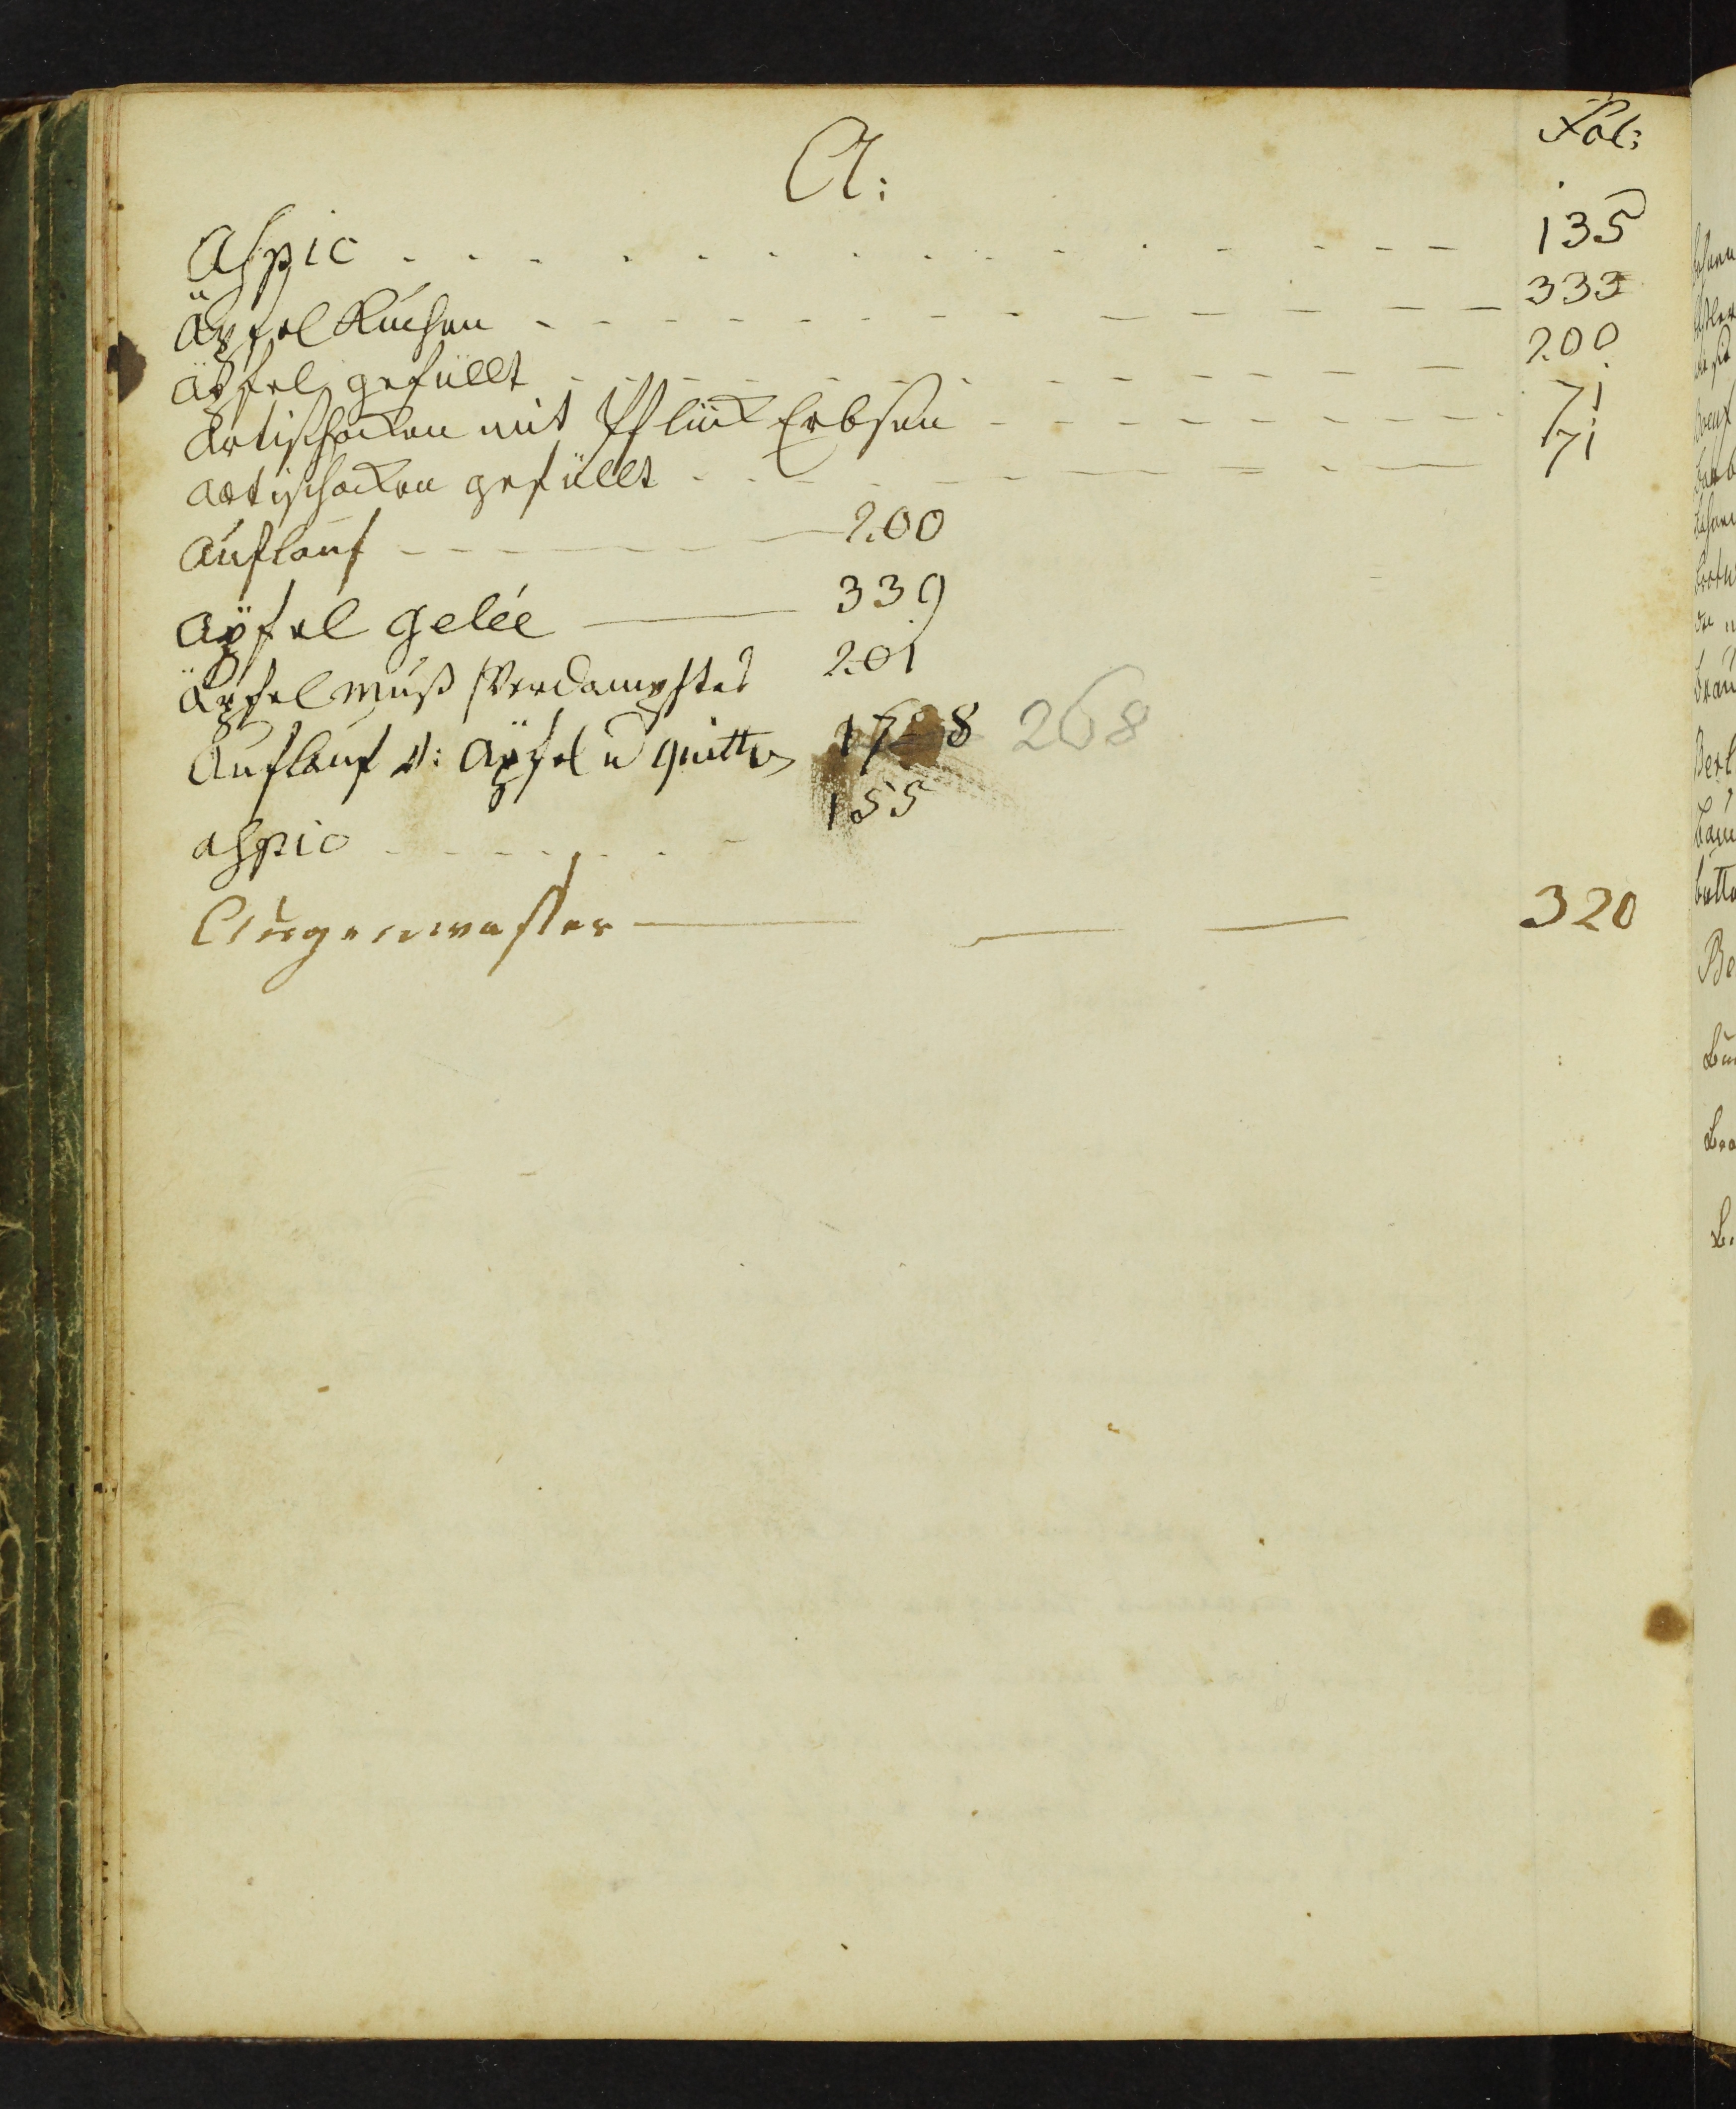 A:
Fol:
Aspic - - - - - - - - - - - - 135
Äpfel Kuchen - - - - - - - - - - - - 333
Äpfel gefüllt - - - - - - - - - - - - 200
Artischocken mit Pflück Erbsen - - - - - - - - 71
Artischocken gefüllt - - - - - - - - - - 71
Auflauf - - - - - - - 200
Äpfel Gelée — 339
Äpfel Muß Verdampftes 201
Auflauf v: Äpfel u Quitten 8 268
aspic - - - - - - - 155
Augenwasser — — — 320